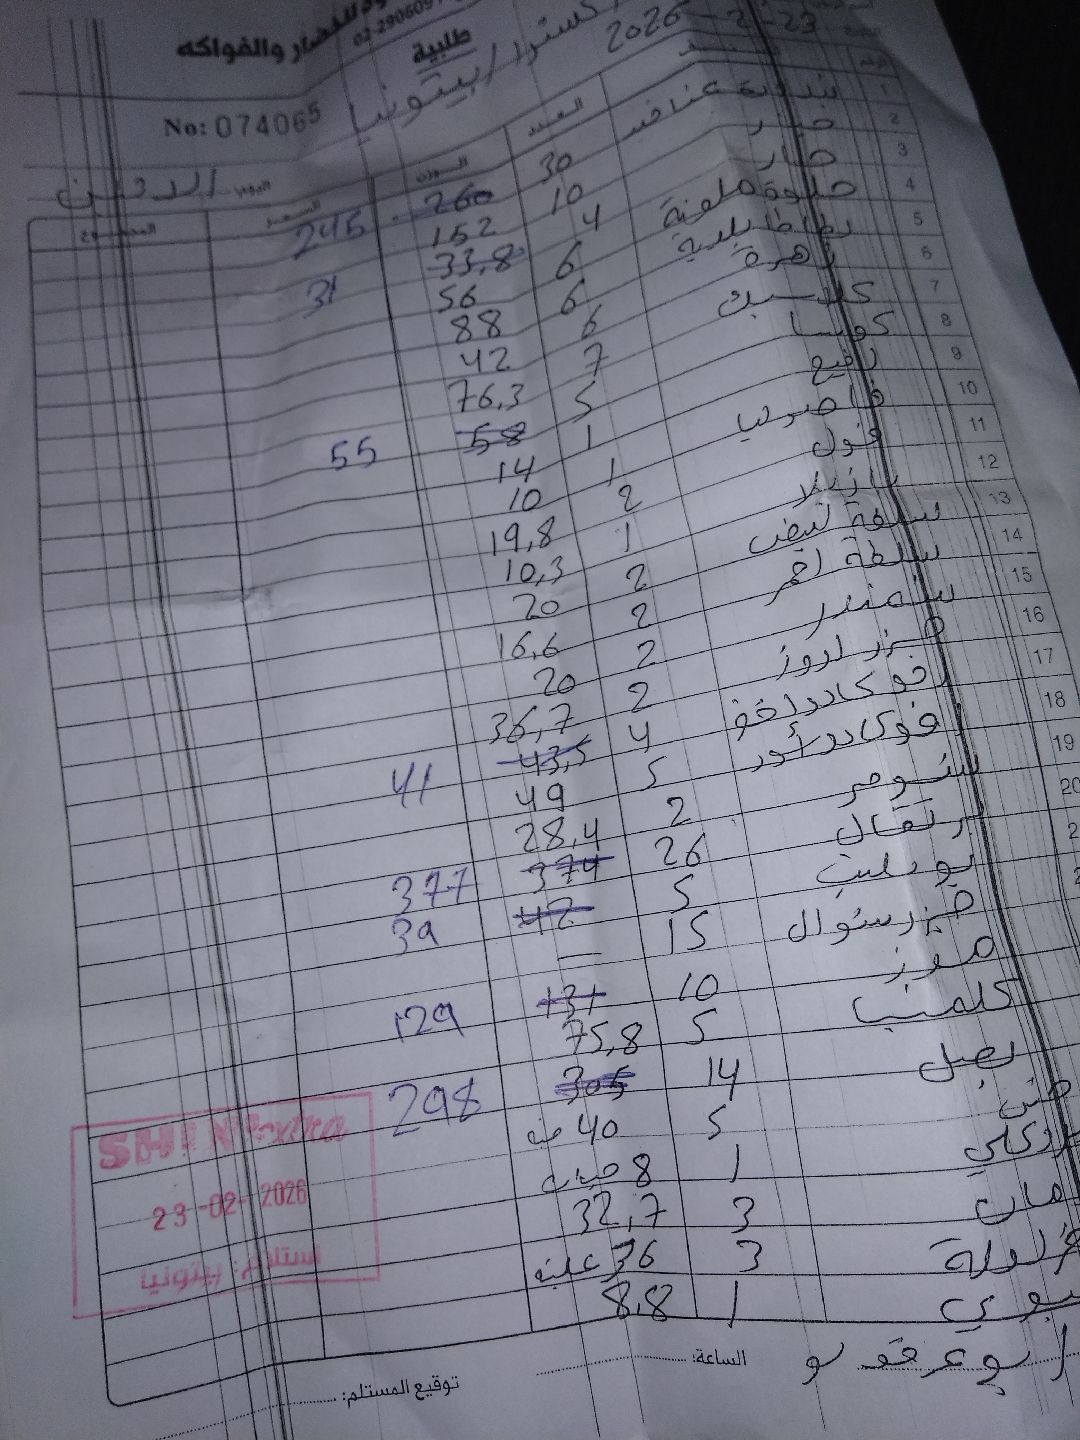 للخضار والفواكه
02-290609
طلبية
No: 074065
اكسترا / بيتونيا
2026-2-23
اليوم: الاثنين
العدد الوزن السعر المجموع
1 بندورة عناقيد 30 260 245
2 خيار 10 152
3 خيار 4 33,8 31
4 حلوة ملونة 6 56
5 بطاطا بلدية 6 88
6 زهرة 6 42
7 كلاسيك 7 76,3
8 كوسا 5 58 55
9 رفيع 1 14
10 فاصوليا 1 10
11 فول 2 19,8
12 بازيلا 1 10,3
13 سلطة ابيض 2 20
14 سلطة احمر 2 16,6
15 شمندر 2 20
16 جزر لاروز 2 36,7
17 افوكادو اخضر 4 43,5 41
18 افوكادو أسود 5 49
19 شومر 2 28,4
20 برتقال 26 374 377
بوملي 5 42 39
جزر ستوال 15 —
موز 10 131 129
كلمنتينا 5 75,8
بصل 14 305 298
خس 5 40 حبة
بروكلي 1 8 حبات
رمان 3 32,7
فراولة 3 36 علبة
1 8,8
الساعة:
توقيع المستلم:
SHINI Extra
23-02-2026
استلام: بيتونيا